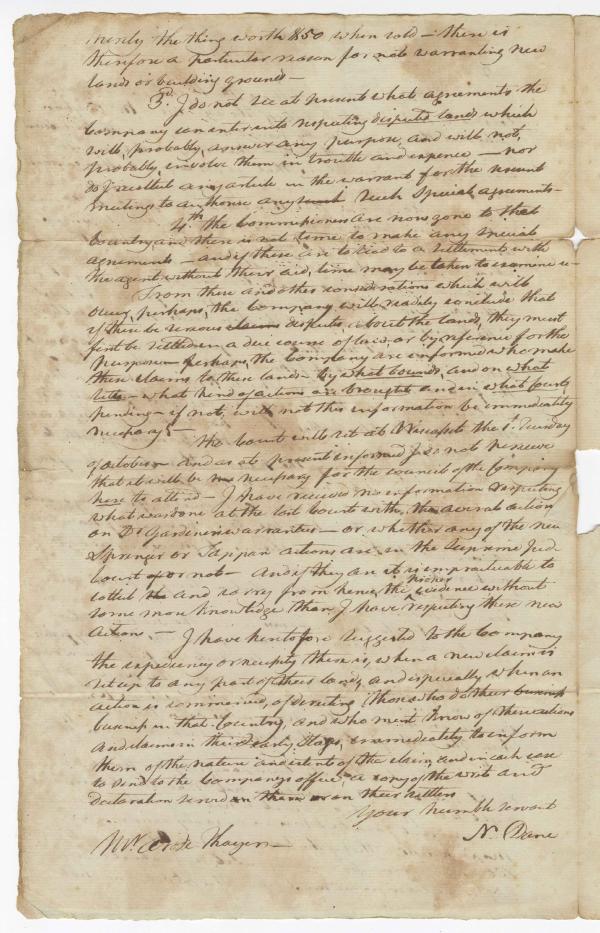 merely the thing worth $50 when sold — there is
therefore a particular reason for not warranting new
lands or building ground —
3d. I do not see at present what agreements the
Company can enter into respecting disputed lands which
will, probably, answer any purpose, and will not,
probably, involve them in trouble and expence — nor
do I recollect any article in the warrant for the present
meeting to authorise any such special agreements —
4th. the Commissioners are now gone to that
Country and there is not time to make any special
agreements — and if these are to lead to a settlement with
the agent without their aid, time may be taken to examine
From these and other considerations which will
occur, perhaps, the Company will readily conclude that
if there be serious claims disputes about the lands, they must
first be settled in a due course of law, or by reference for the
purpose — perhaps, the Company are informed who make
these claims to these lands — by what bounds, and on what
title — what kind of actions are brought and in what Courts
pending — if not, will not this information be immediately
necessary? —
The Court will set at Wiscasset the 1. Tuesday
of october and as at present informed I do not perceive
that it will be necessary for the council of the Company
here to attend — I have received no information respecting
what was done at the last Court with, the several action
on Dr Gardiners warranties — or whether any of the new
Springer or Tappan actions are in the Supreme Jud.
Court or not — And if they are it is impracticable to
collect and so way from hence, the evidence without
some more knowledge than I have respecting these new
Actions. — I have heretofore suggested to the Company
the expediency or necessity there is, when a new claim is
set up to any part of their lands, and especially when an
action is commenced, of directing those who do their business
business in that Country, and who must know of these actions
and claims in their early stage, immediately to inform
them of the nature and extent of the claim, and in each case
to send to the Companys office, a copy of the writ and
declaration served on them or on their settlers
Your humble servant
N. Dane
Mr. Thayer —